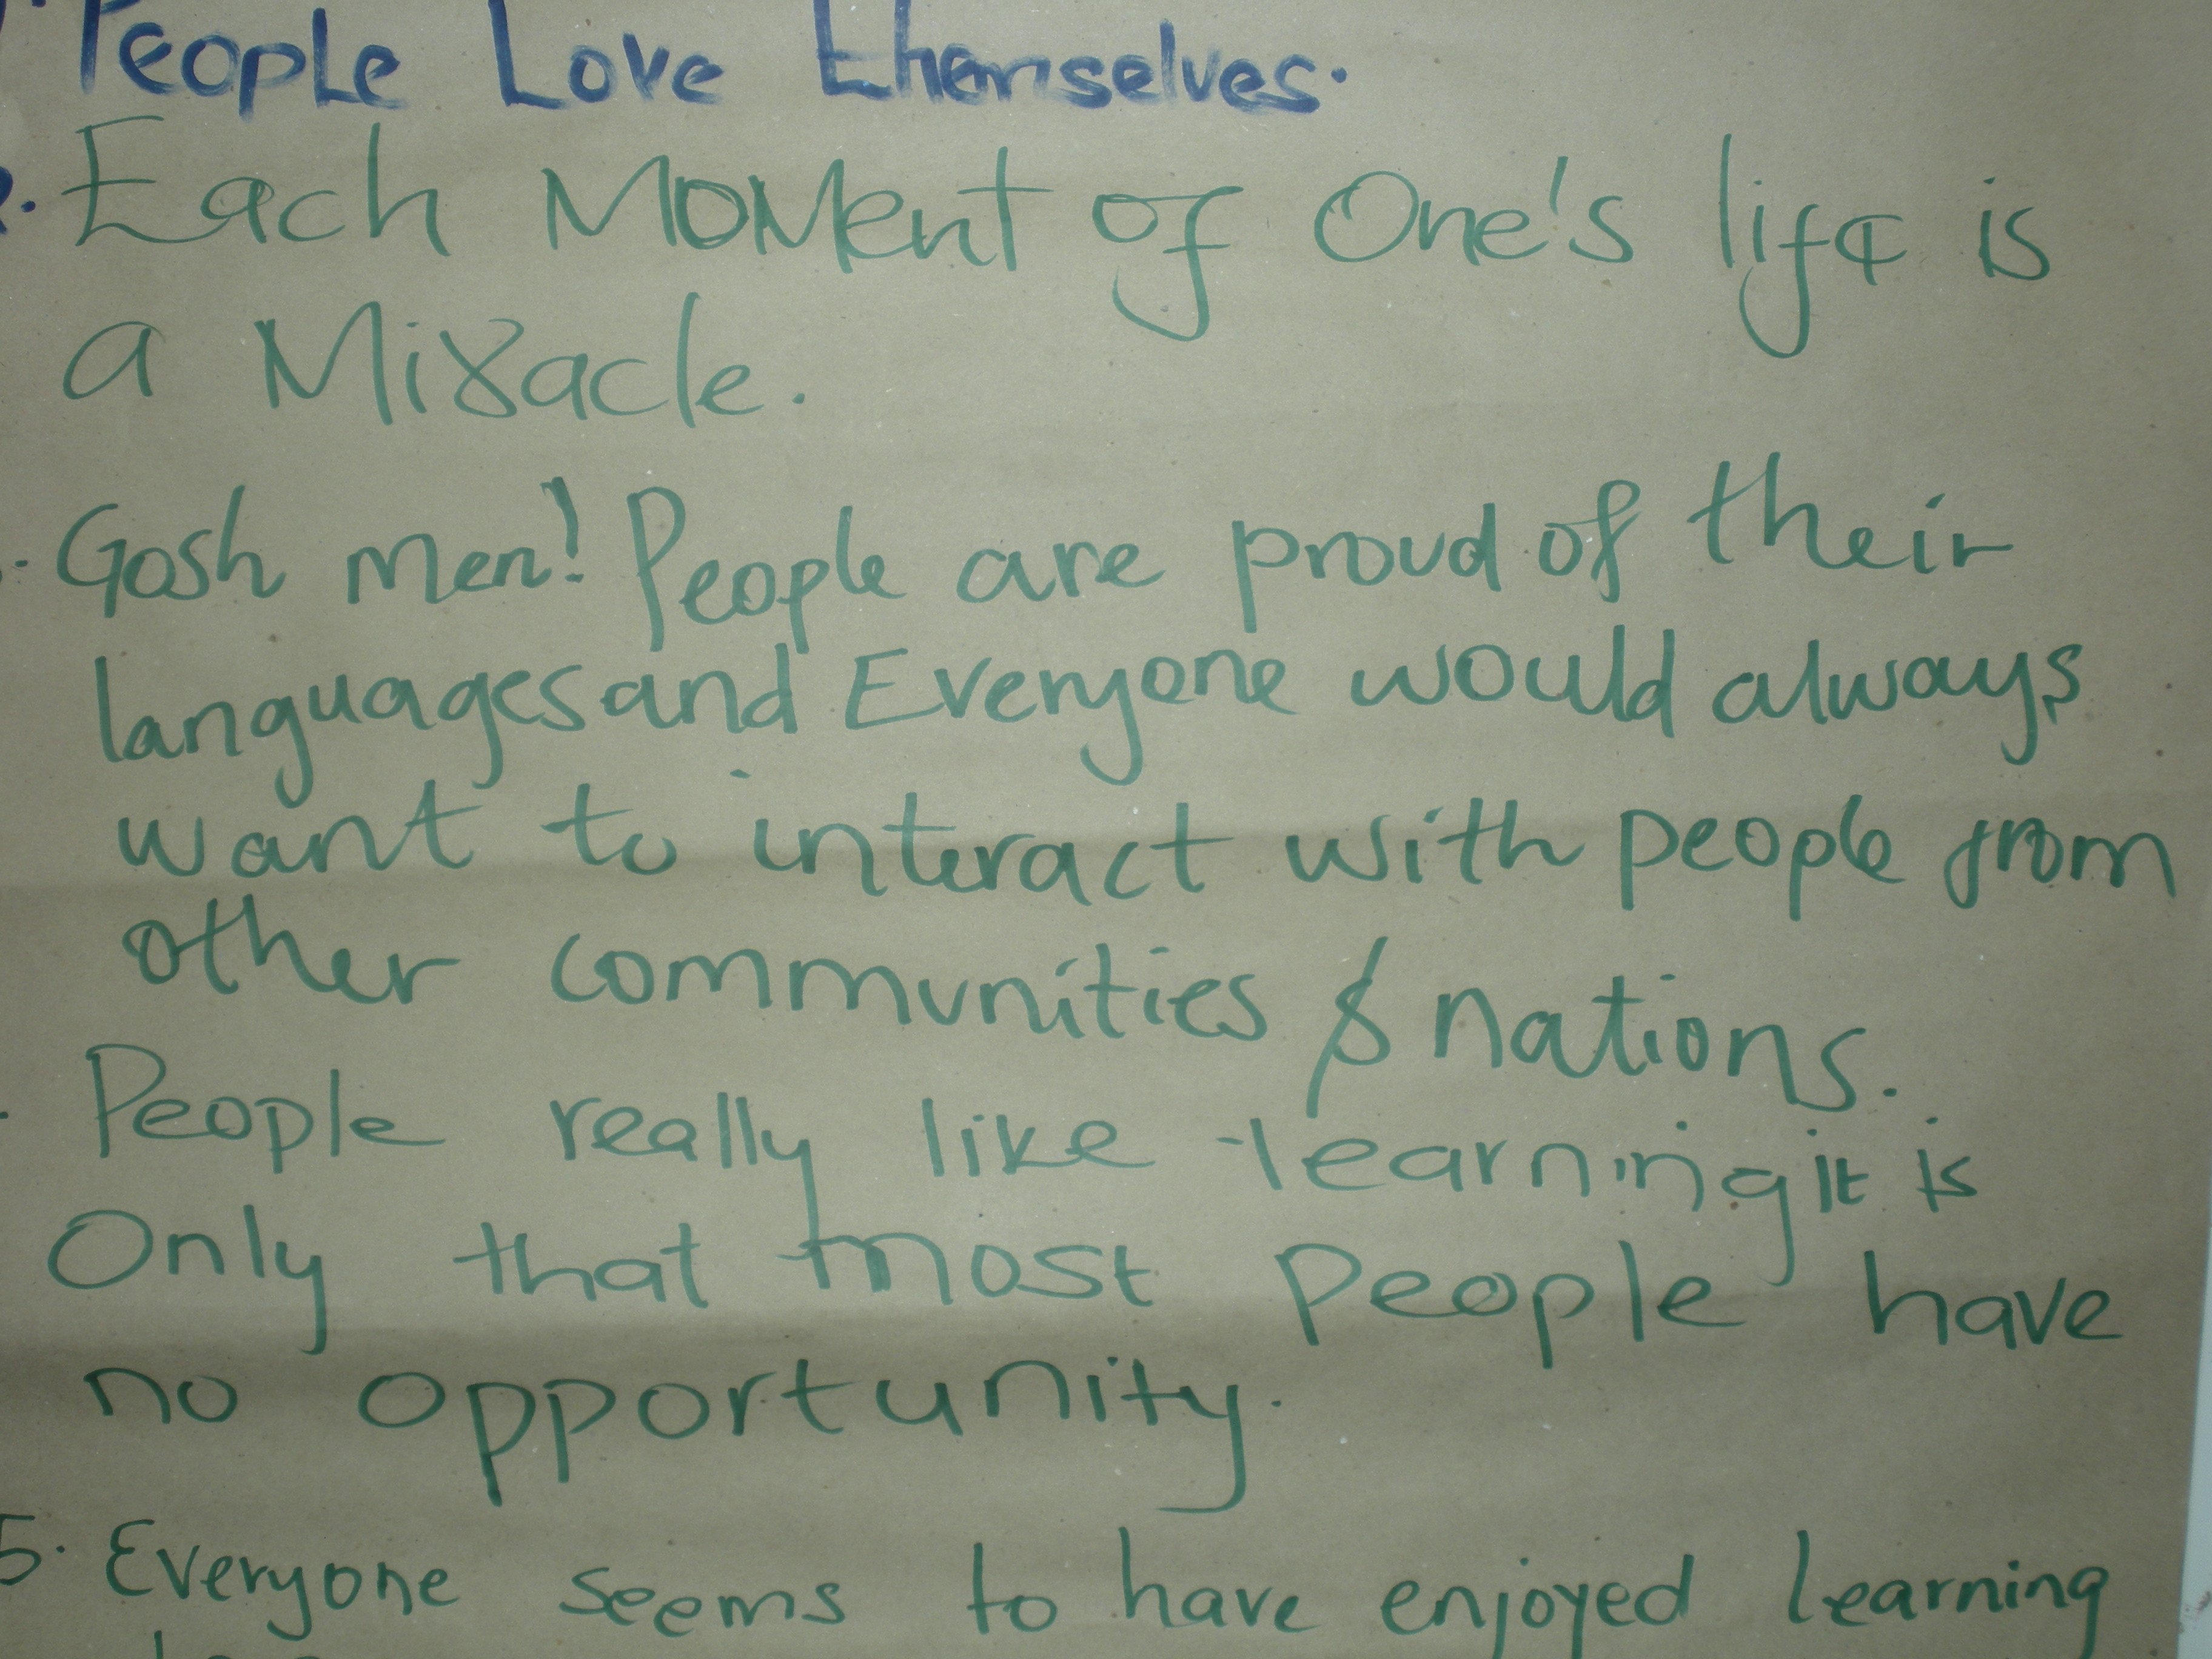 People Love themselves.
Each Moment of One's life is
a Miracle.
Gosh men! People are proud of their
languages and Everyone would always
want to interact with people from
other communities & nations.
People really like learning it is
Only that most people have
no opportunity.
5. Everyone seems to have enjoyed learning